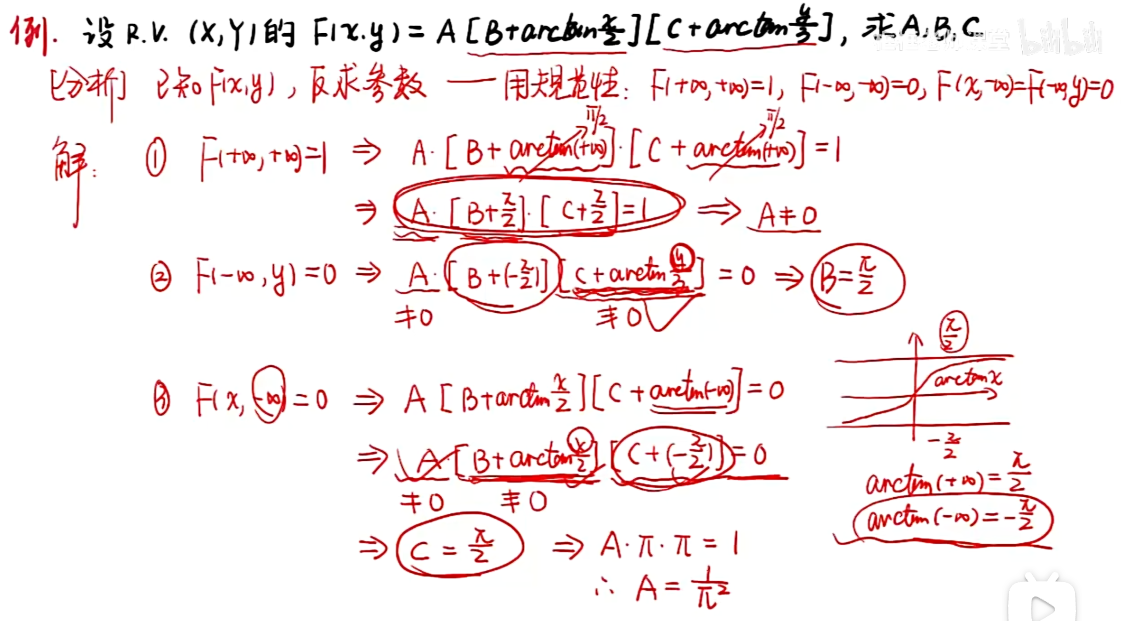 例. 设 R.V. (X,Y)的 F(x.y) = A [B+arctan x/2][C+arctan y/3], 求A,B,C
[分析] 已知F(x,y), 反求参数 —— 用规范性: F(+∞,+∞)=1, F(-∞,-∞)=0, F(x,-∞)=F(-∞,y)=0
解: ① F(+∞,+∞)=1 ⇒ A·[B+arctan(+∞)]·[C+arctan(+∞)]=1
π/2 π/2
⇒ A·[B+π/2]·[C+π/2]=1 ⇒ A≠0
② F(-∞,y)=0 ⇒ A·[B+(-π/2)][C+arctan y/3]=0 ⇒ B=π/2
≠0 ≢0
③ F(x,-∞)=0 ⇒ A[B+arctan x/2][C+arctan(-∞)]=0
⇒ A[B+arctan x/2][C+(-π/2)]=0
≠0 ≢0
⇒ C=π/2 ⇒ A·π·π=1
∴ A=1/π²
π/2
arctanx
-π/2
arctan(+∞)=π/2
arctan(-∞)=-π/2
bilibili